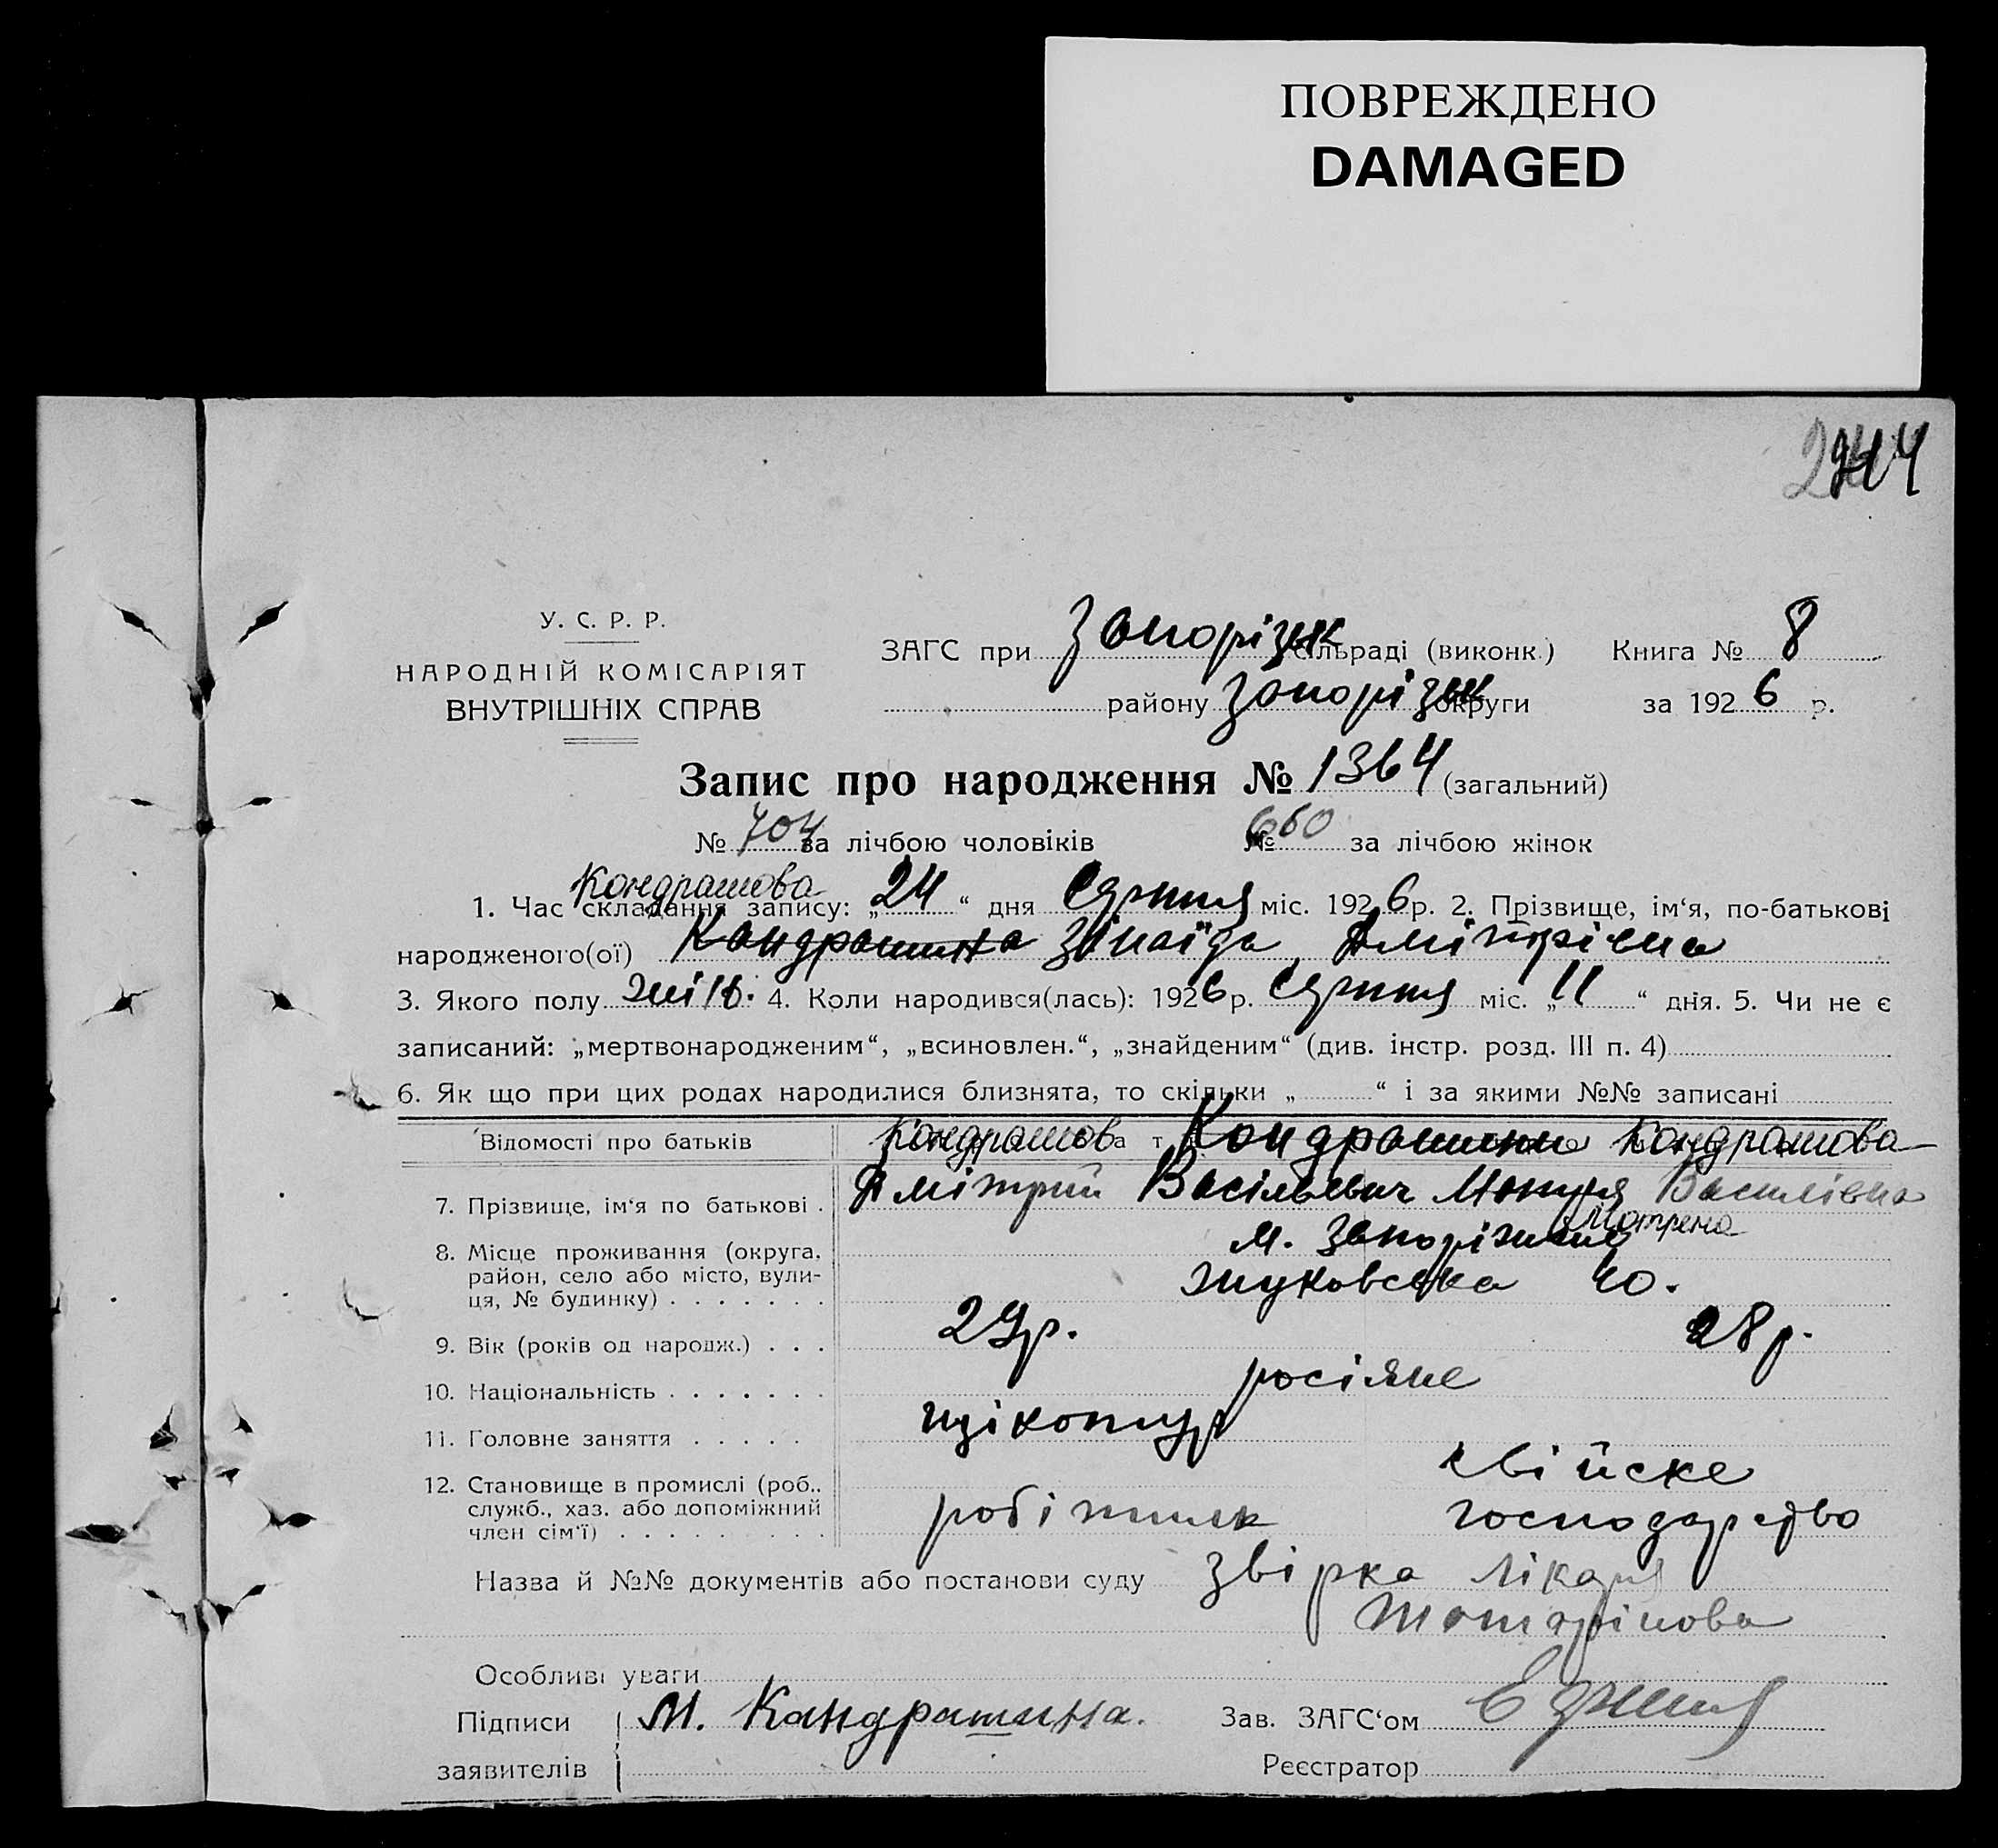 ПОВРЕЖДЕНО
DAMAGED
У. С. Р. Р.
НАРОДНІЙ КОМІСАРІЯТ
ВНУТРІШНІХ СПРАВ
ЗАГС при Запорізьк сільраді (виконк.) Книга № 8
району Запорізьк округи за 1926 р.
Запис про народження № 1364 (загальний)
№ 704 за лічбою чоловіків № 660 за лічбою жінок
Кондрашова
1. Час складання запису: „24“ дня Серпня міс. 1926 р. 2. Прізвище, ім‘я, по-батькові
народженого(ої) Кандрашина Зінаїда Дмітрієна
3. Якого полу жін. 4. Коли народився(лась): 1926 р. Серпня міс. „11“ дня. 5. Чи не є
записаний: „мертвонародженим“, „всиновлен.“, „знайденим“ (див. інстр. розд. III п. 4)
6. Як що при цих родах народилися близнята, то скільки „ “ і за якими №№ записані
Відомості про батьків Кондрашов Кондрашини Кондрашова
7. Прізвище, ім‘я по батькові . Дмітрий Васільєвич Василівна
Мотрена
8. Місце проживання (округа, м. Запоріжжя
район, село або місто, вули- Жуковська 40.
ця, № будинку) . . . . . . .
9. Вік (років од народж.) . . . 29 р. 28 р.
10. Національність . . . . . . . росіяне
11. Головне заняття . . . . . щікотур
12. Становище в промислі (роб., свійске
служб., хаз. або допоміжний робітник господарство
член сім‘ї) . . . . . . . . .
Назва й №№ документів або постанови суду звірка лікаря
Особливі уваги
Підписи М. Кандрашина. Зав. ЗАГС‘ом
заявителів Реєстратор